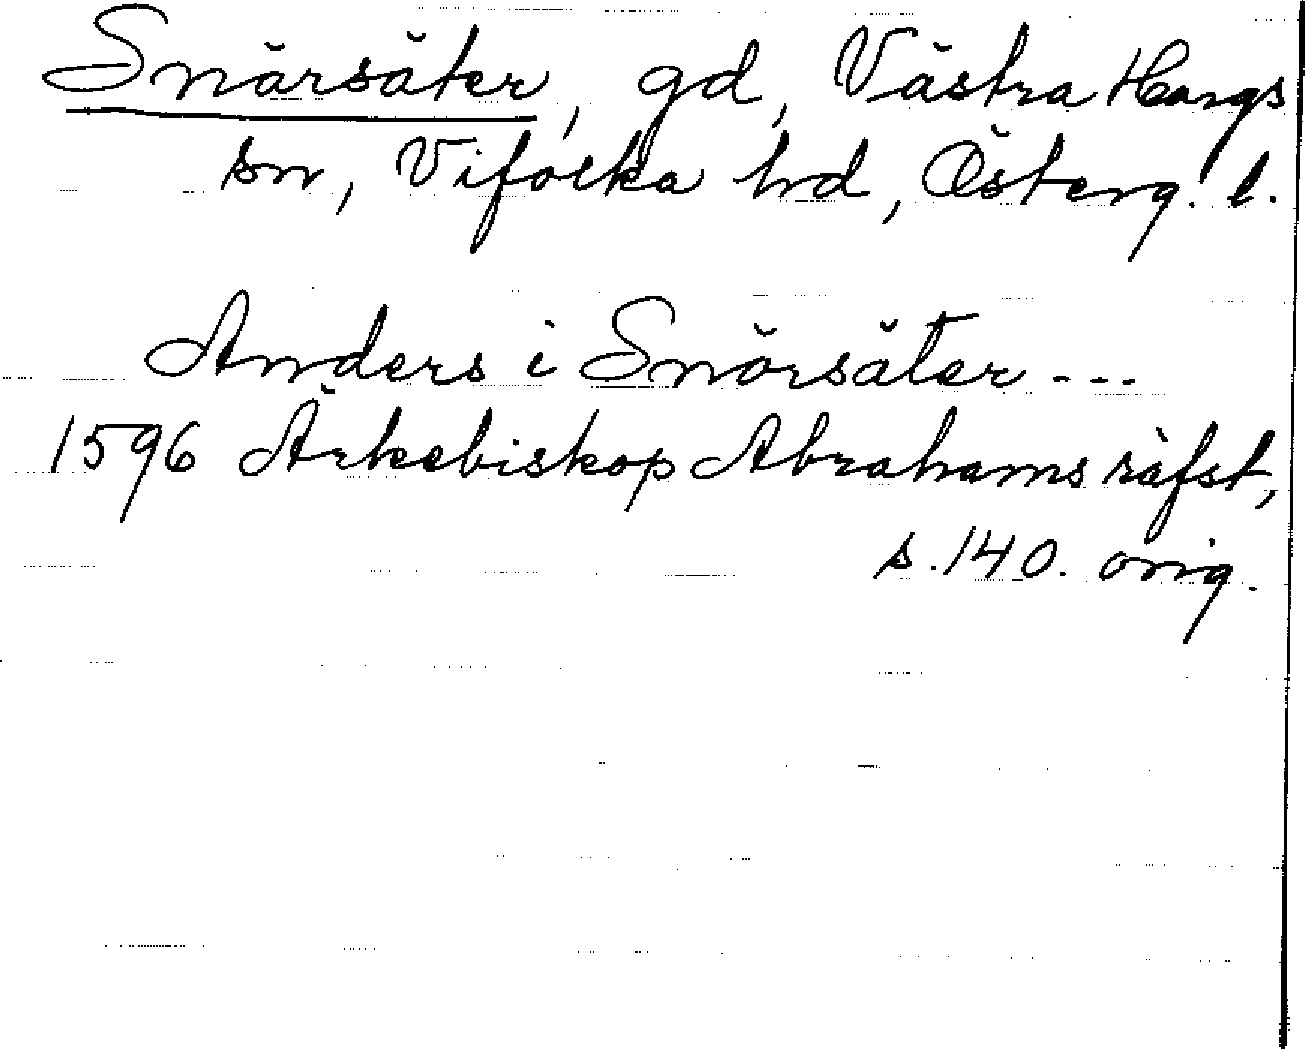 Snärsäter, gd, Västra Hargs
sn, Vifolka hd, Österg. l.
Anders i Snörsäter ---
1596 Ärkebiskop Abrahams räfst,
s. 140. orig.